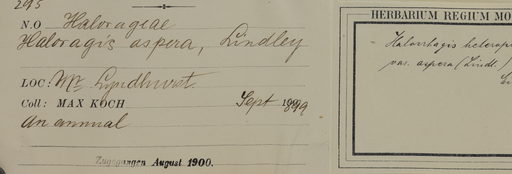 295
N.O Halorageae
Haloragis aspera, Lindley
LOC: Mt Lyndhurst
Coll: MAX KOCH Sept 1899
An annual
Zugegangen August 1900.
HERBARIUM REGIUM MO
Halorrhagis heterop
var. aspera (Lindl.)